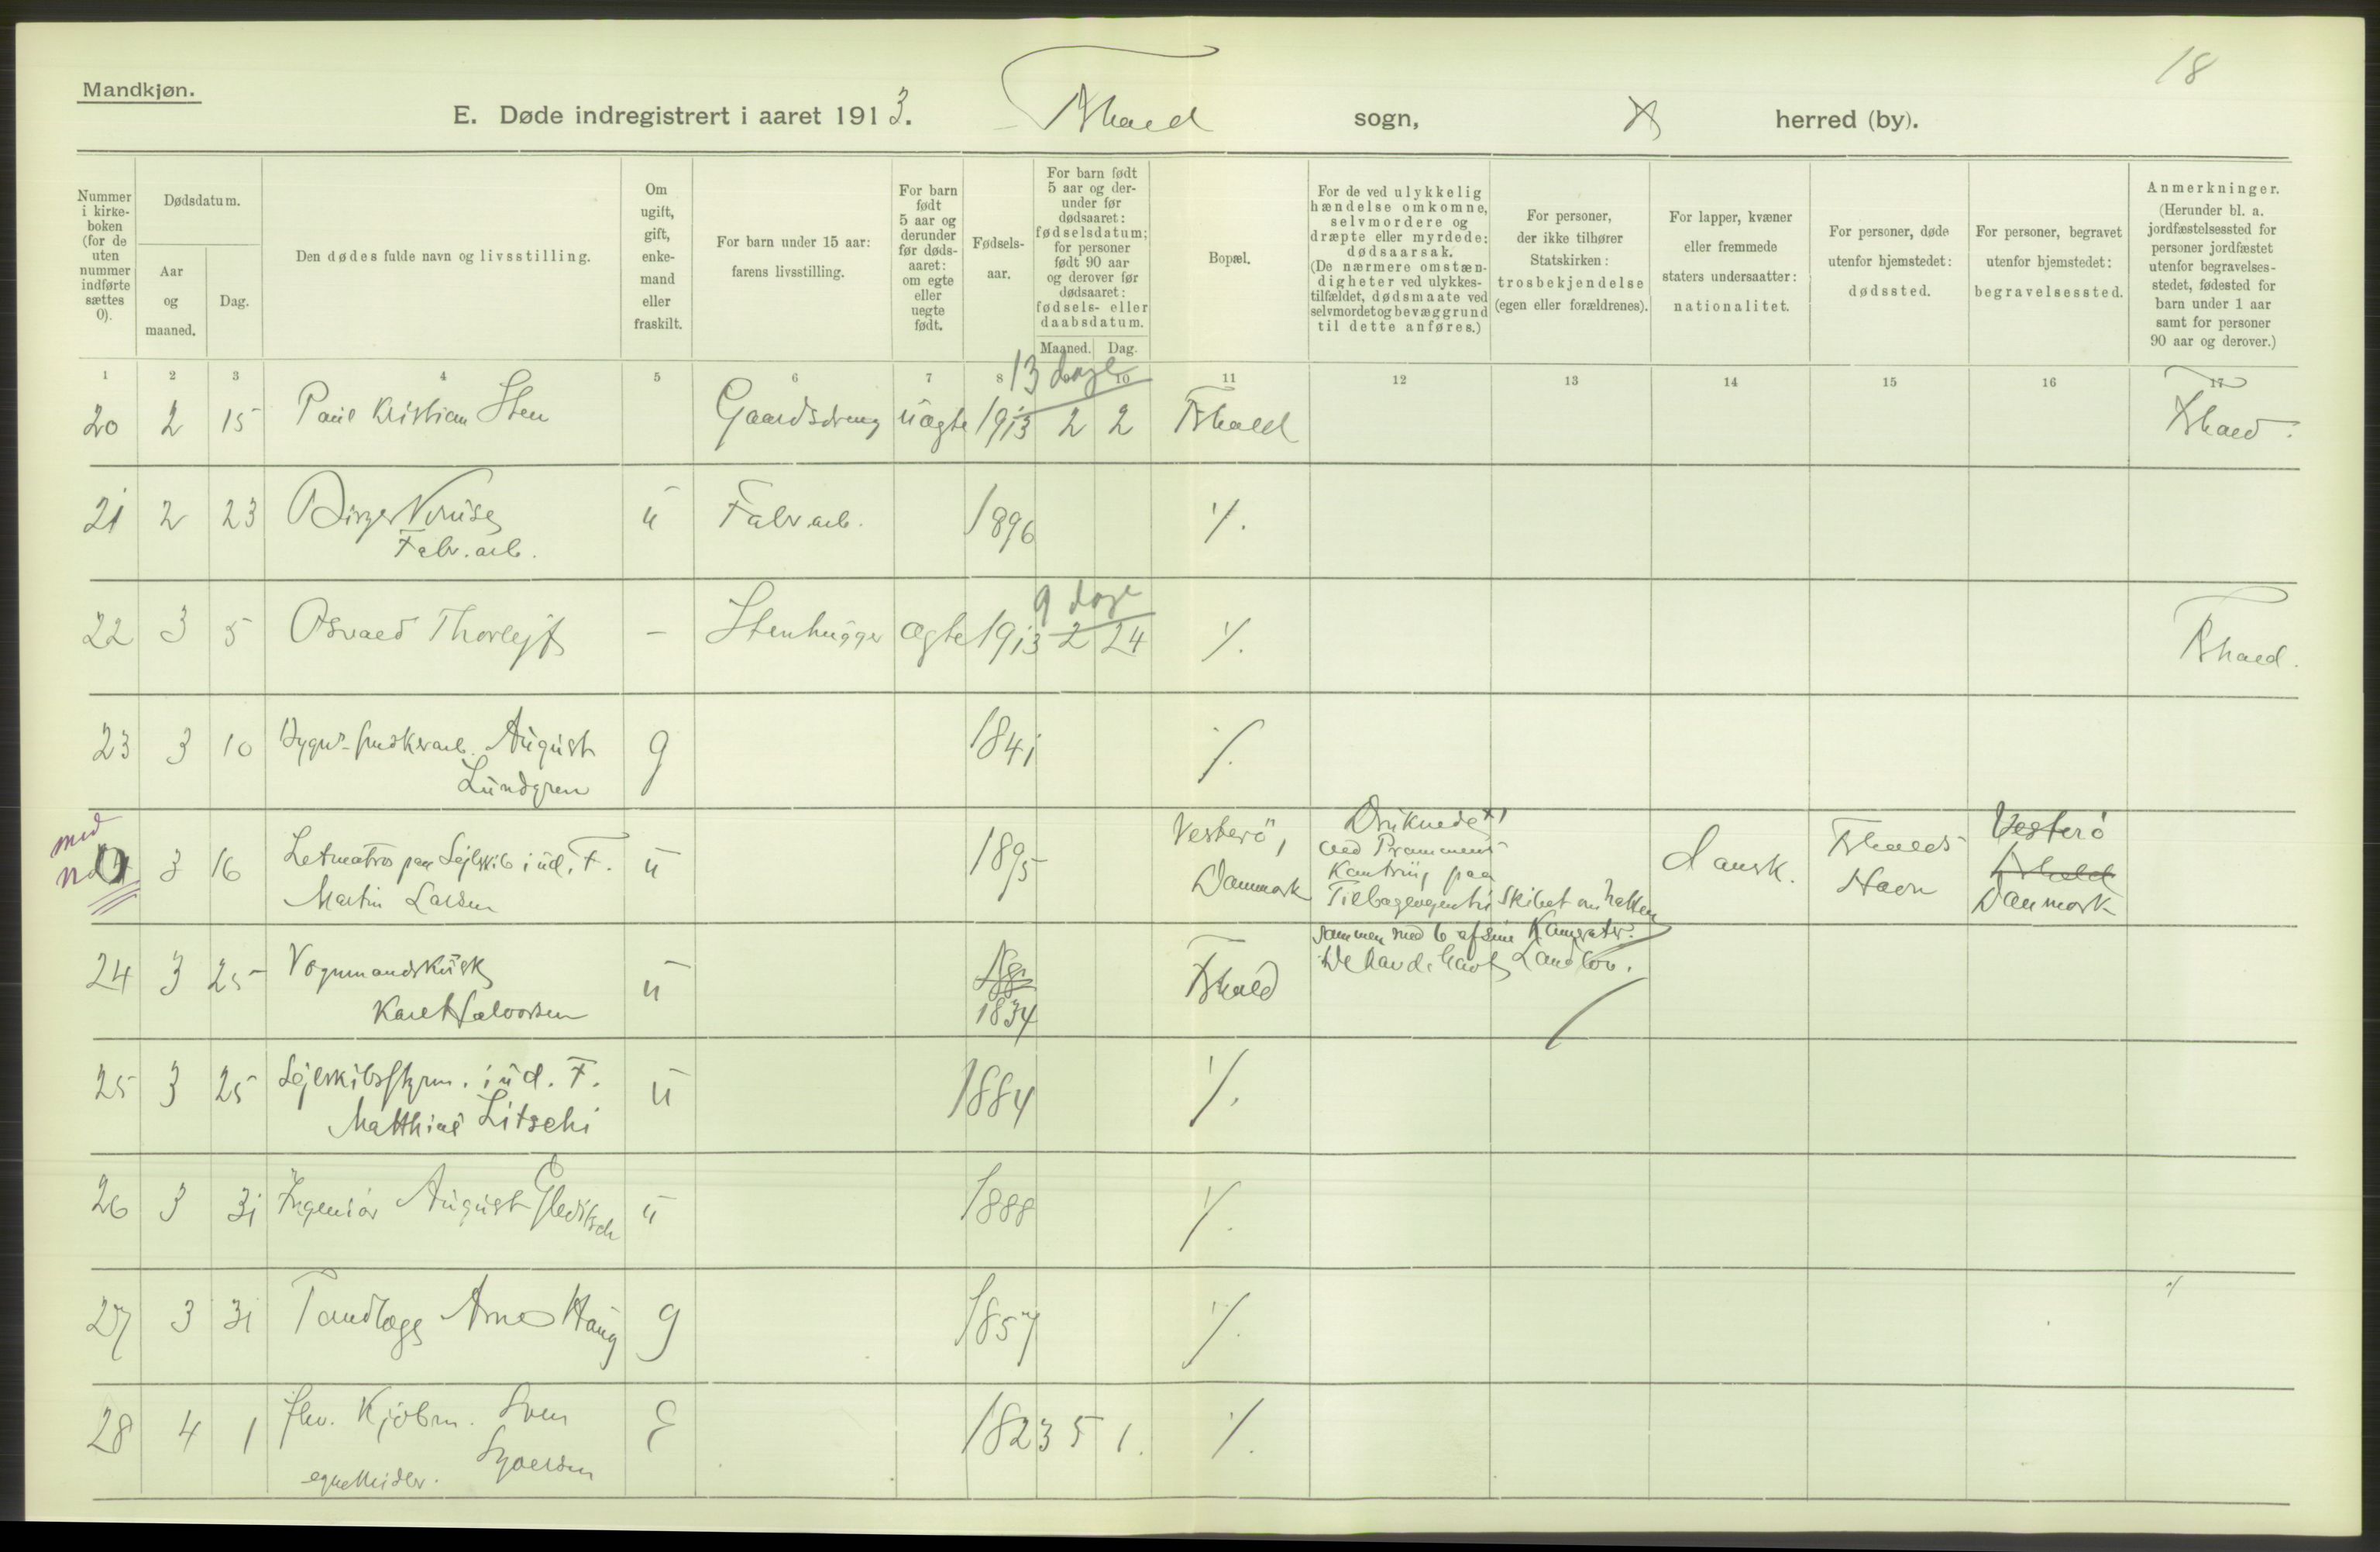 18
Mandkjøn.
E. Døde indregistrert i aaret 1913. Fhald sogn, herred (by).
Nummer i kirkeboken (for de uten nummer indførte sættes 0).
Dødsdatum.
Aar og maaned.
Dag.
Den dødes fulde navn og livsstilling.
Om ugift, gift, enkemand eller fraskilt.
For barn under 15 aar: farens livsstilling.
For barn født 5 aar og derunder før dødsaaret: om egte eller uegte født.
Fødselsaar.
For barn født 5 aar og derunder før dødsaaret: fødselsdatum; for personer født 90 aar og derover før dødsaaret: fødsels- eller daabsdatum.
Maaned. Dag.
Bopæl.
For de ved ulykkelig hændelse omkomne, selvmordere og dræpte eller myrdede: dødsaarsak. (De nærmere omstændigheter ved ulykkestilfældet, dødsmaate ved selvmordet og bevæggrund til dette anføres.)
For personer, der ikke tilhører Statskirken: trosbekjendelse (egen eller forældrenes).
For lapper, kvæner eller fremmede staters undersaatter: nationalitet.
For personer, døde utenfor hjemstedet: dødssted.
For personer, begravet utenfor hjemstedet: begravelsessted.
Anmerkninger. (Herunder bl. a. jordfæstelsessted for personer jordfæstet utenfor begravelsesstedet, fødested for barn under 1 aar samt for personer 90 aar og derover.)
1 2 3 4 5 6 7 8 9 10 11 12 13 14 15 16 17
13 dage
20 2 15 Paul Kristian Sten Gaardsdreng uægte 1913 2 2 Fhald Fhald.
21 2 23 Birger Kruse u Fabr.arb. 1896 ٪.
Fabr.arb.
9 dage
22 3 5 Osvald Thorlejf - Stenhugger ægte 1913 2 24 ٪. Fhald.
23 3 10 August g 1841 ٪.
Lundgren
0 3 16 Letmatros paa Sejlskib i ud. F. u 1895 Vesterö, Dansk. Fhalds Vesterö
Martin Larsen Danmark Havn Fhald Danmark
Druknede
ved Prammens
Kantring paa
Tilbagevejen til Skibet om Natten
sammen med 6 af sine Kamerater.
De havde havt Landlov.
24 3 25 Vognmandskusk u 1834 Fhald
Karel Halvorsen
25 3 25 Sejlskibsstyrm. i ud. F. u 1884 ٪.
Matthias Litschi
26 3 31 Ingeniör August Gleditsch u 1888 ٪.
27 3 31 Tandlæge Arne Haug g 1857 ٪.
28 4 1 fhv. Kjöbm. Sven E 1823 5 1. ٪.
Syversen
egne Midler.